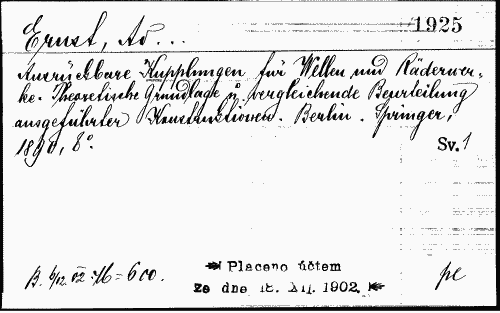 1925
Ernst, Ad...
Ausrückbare Kupplungen für Wellen und Räderwer-
ke. Theoretische Grundlage u. vergleichende Beurteilung
ausgeführter Konstruktionen. Berlin. Springer,
1890, 8°.
Sv. 1
B. 6/12. 02 = 6.00.
Placeno účtem
ze dne 18. XII. 1902.
pe